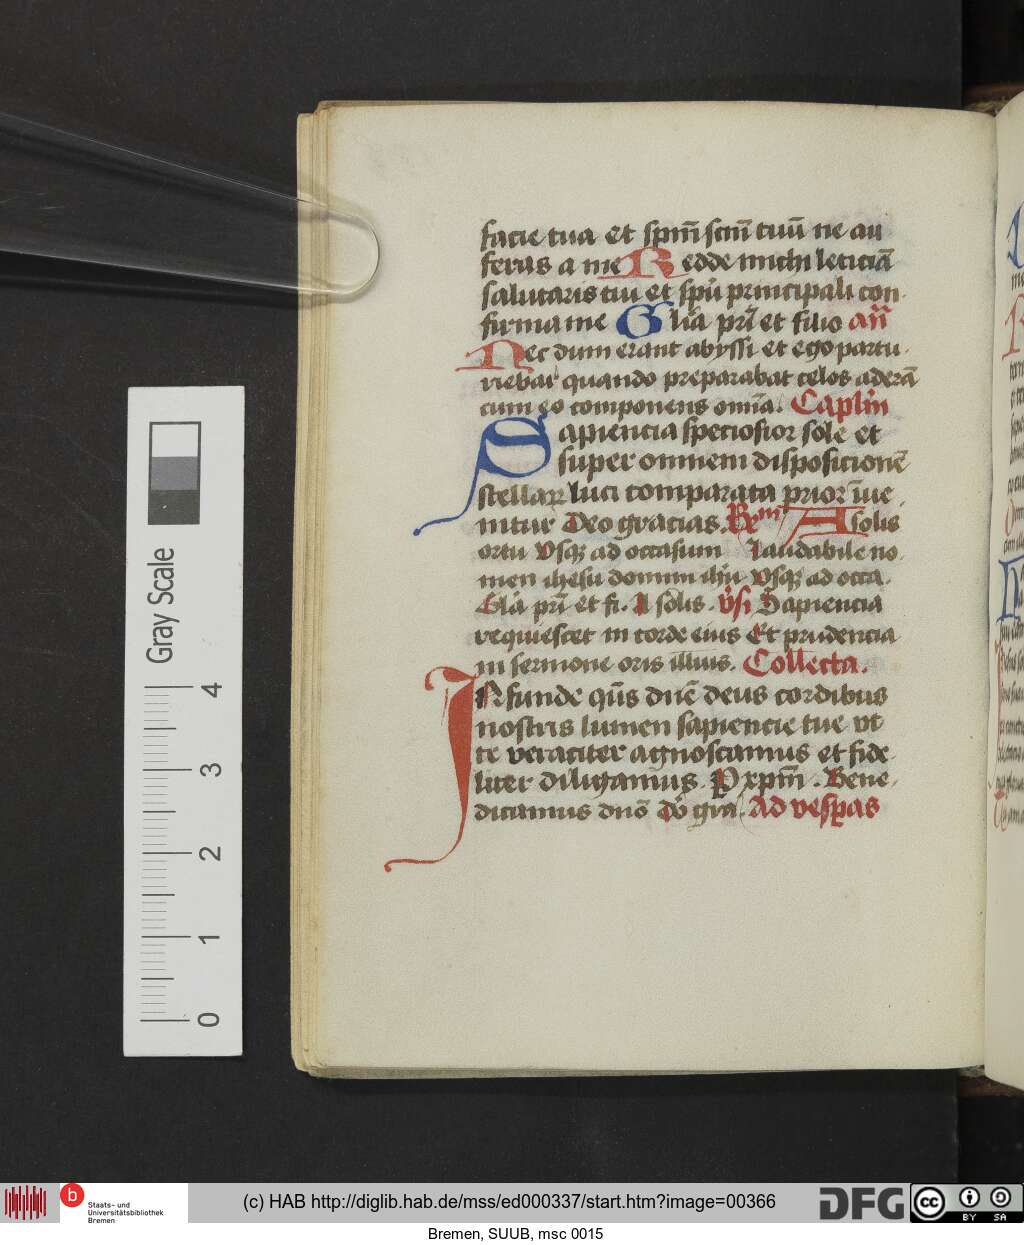 facie tua et sp̄m sc̄m tuū ne au
feras a me Redde michi leticiā
salutaris tui et sp̄u principali con-
firma me Gl̄ia pr̄i et filio an̄
Nec dum erant abyssi et ego partu-
riebar quando preparabat celos aderā
cum eo componens om̄ia. Capl̄m
Sapiencia speciosior sole et
super omnem disposicionē
stellaꝝ luci comparata prior īue
nitur Deo gracias. Rm̄ A solis
ortu Vsqꝫ ad occasum Laudabile no
men ihesu domini Vsqꝫ ad occa.
Gl̄a pr̄i et fi. A solis. v̄si Sapiencia
requiescet in corde eius Et prudencia
in sermone oris illius. Collecta.
INfunde qūs dn̄e deus cordibus
nostris lumen sapiencie tue vt
te veraciter agnoscamus et fide
liter diligamus. P xp̄m. Bene-
dicamus dn̄o Dō gr̄a. Ad vesꝑas
Gray Scale
4
3
2
1
0
b
Staats- und
Universitätsbibliothek
Bremen
(c) HAB http://diglib.hab.de/mss/ed000337/start.htm?image=00366
DFG
cc
BY SA
Bremen, SUUB, msc 0015